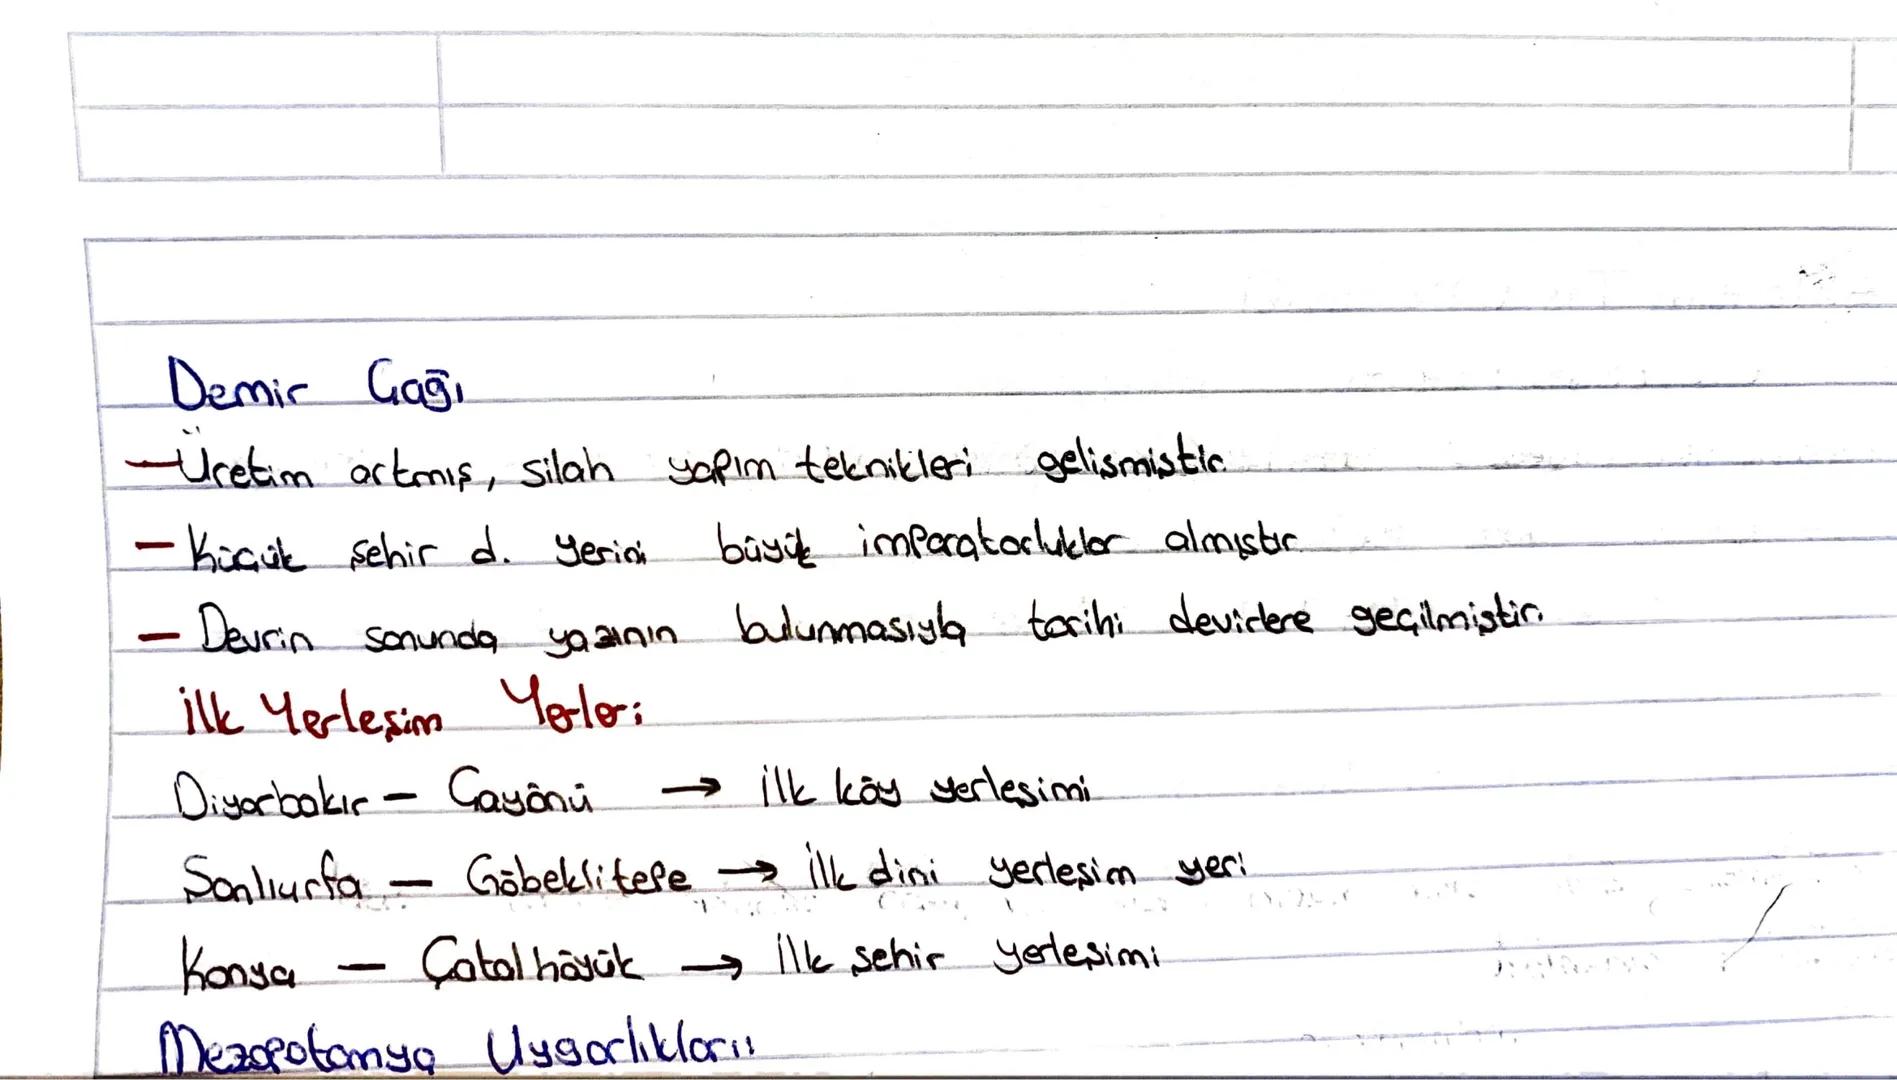 Demir Çağı
— Üretim artmış, silah yapım teknikleri gelişmiştir.
— Küçük şehir d. yerini büyük imparatorluklar almıştır.
— Devrin sonunda yazının bulunmasıyla tarihi devirlere geçilmiştir.
İlk Yerleşim Yerleri
Diyarbakır — Çayönü → İlk köy yerleşimi
Şanlıurfa — Göbeklitepe → İlk dini yerleşim yeri
Konya — Çatalhöyük → İlk şehir yerleşimi
Mezopotamya Uygarlıkları!